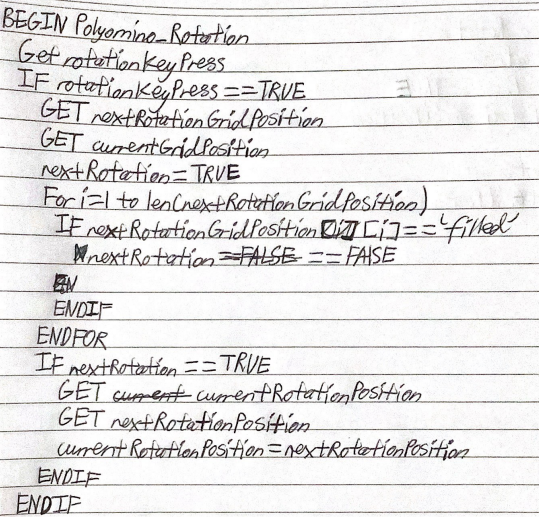 BEGIN Polyomino_Rotation
Get rotationKeyPress
IF rotationKeyPress == TRUE
GET nextRotationGridPosition
GET currentGridPosition
nextRotation = TRUE
For i=1 to len(nextRotationGridPosition)
IF nextRotationGridPosition [i] == 'filled'
nextRotation =FALSE == FAlSE
EN
ENDIF
ENDFOR
IF nextRotation == TRUE
GET current currentRotationPosition
GET nextRotationPosition
currentRotationPosition = nextRotationPosition
ENDIF
ENDIF